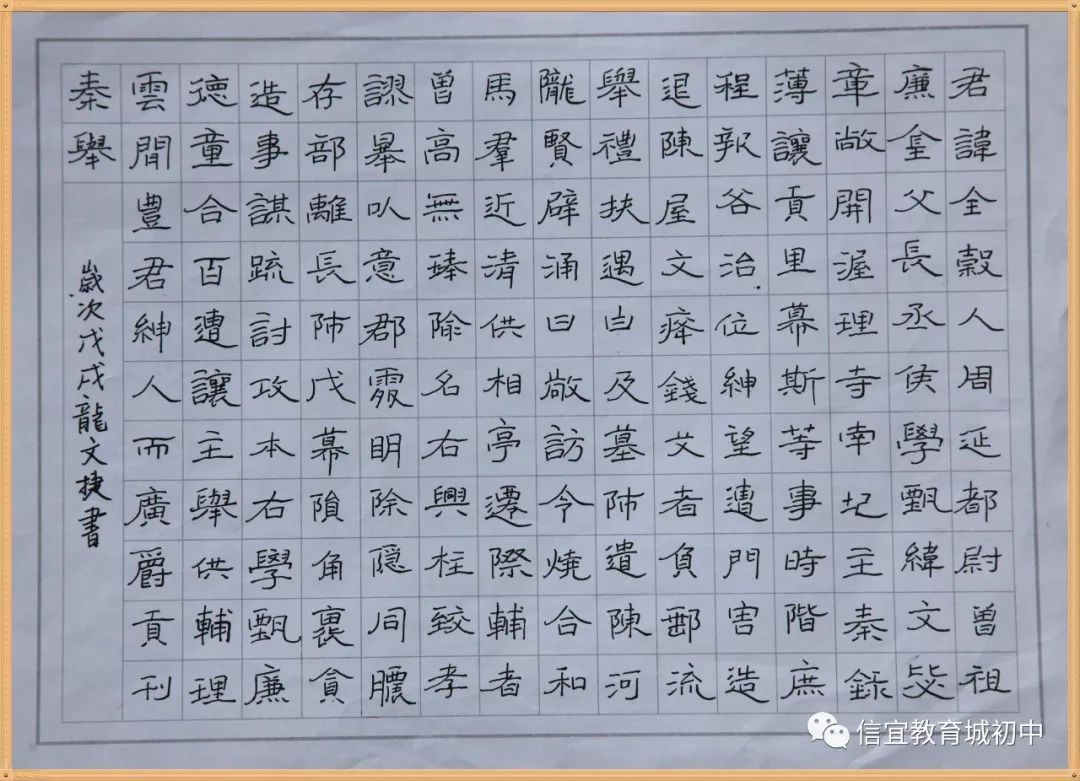 君諱全穀人周延都尉曾祖
廉父長丞侯學甄緯文毖
章敞開渥理寺南主秦錄
薄讓貢里幕斯等事時階庶
程報谷治位紳望遭門害造
退陳屋文瘁錢艾者負郵流
舉禮扶遇由及墓沛遺陳河
隴賢辟涌曰敞訪令燒合和
馬羣近清供相亭遷際輔者
曾高無臻隃名右興柱致孝
謬暴以意郡明除隠同膿
存部離長沛戊幕隕角裏貪
造事謀疏討攻本右學甄廉
德童合百遭讓主舉供輔理
雲聞豊君紳人而廣爵貢刊
秦舉
歲次戊戌龍文捷書
信宜教育城初中